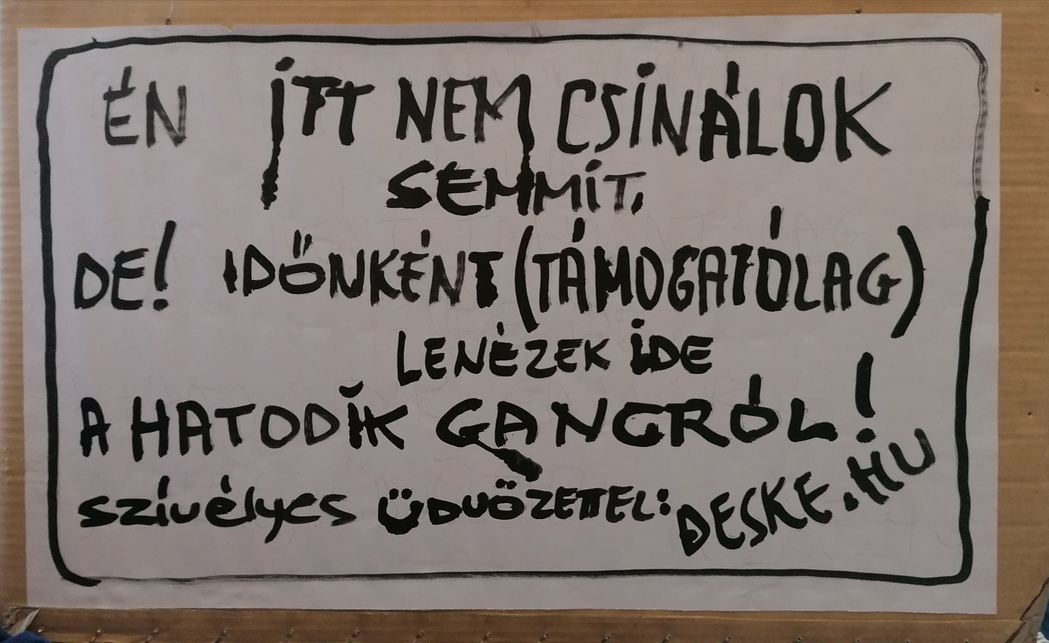 ÉN ITT NEM CSINÁLOK
SEMMIT,
DE! IDŐNKÉNT (TÁMOGATÓLAG)
LENÉZEK IDE
A HATODIK GANGRÓL!
szívélyes ÜDVÖZETTEL: DESKE.HU